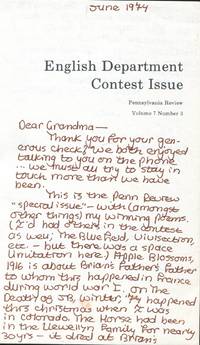 June 1974
English Department
Contest Issue
Pennsylvania Review
Volume 7 Number 3
Dear Grandma—
Thank you for your gen-
erous check; we both enjoyed
talking to you on the phone
... we must all try to stay in
touch more than we have
been.
This is the Penn Review
"special issue" – with (amongst
other things) my winning poems.
(I'd had others in the contest
as well; The Bluefield, Vivisection,
etc. – but there was a space
limitation here.) Apple Blossoms,
1916 is about Brian's Father's Father
to whom this happened in France
during World War I. On the
Death of a Winter,
happened
this Christmas when I was
in Colorado. The Horse had been
in the Llewellyn Family for nearly
30 yrs – it died at Brian's